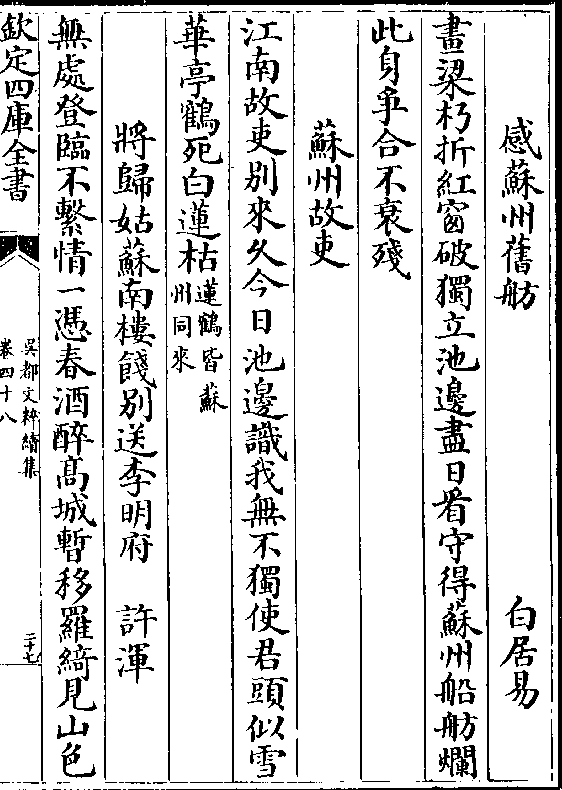 感蘇州舊舫　白居易
畫梁朽折紅窗破獨立池邊盡日看守得蘇州船舫爛
此身爭合不衰殘
蘇州故吏
江南故吏别來久今日池邊識我無不獨使君頭似雪
華亭鶴死白蓮枯蓮鶴皆蘇州同來
將歸姑蘇南樓餞别送李明府　許渾
無處登臨不繫情一憑春酒醉髙城暫移羅綺見山色
欽定四庫全書
吳都文粹續集
卷四十八
二十七